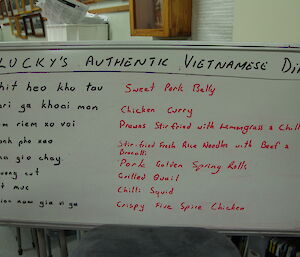 LUCKY'S AUTHENTIC VIETNAMESE
heo kho tau Sweet Pork Belly
ga khoai mon Chicken Curry
riem xo voi Prawns Stirfried with Lemongrass &
pho xao Stir-fried Fresh Rice Noodles with Beef &
Broccoli
gio chay Pork Golden Spring Rolls
cut Grilled Quail
muc Chilli Squid
nam gia vi ga Crispy Five Spice Chicken